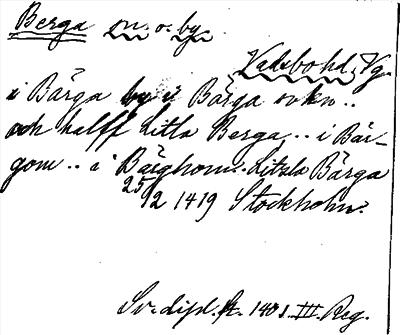 Berga sn. o. by.
Valsbo hd, Vg.
i Bärga by i Bärga sokn..
och halff Litla Berga .. i Bär-
gom .. i Bärghom. Litzla Bärga
25/2 1419 Stockholm.
Sv. dipl. fr. 1401. III. Reg.